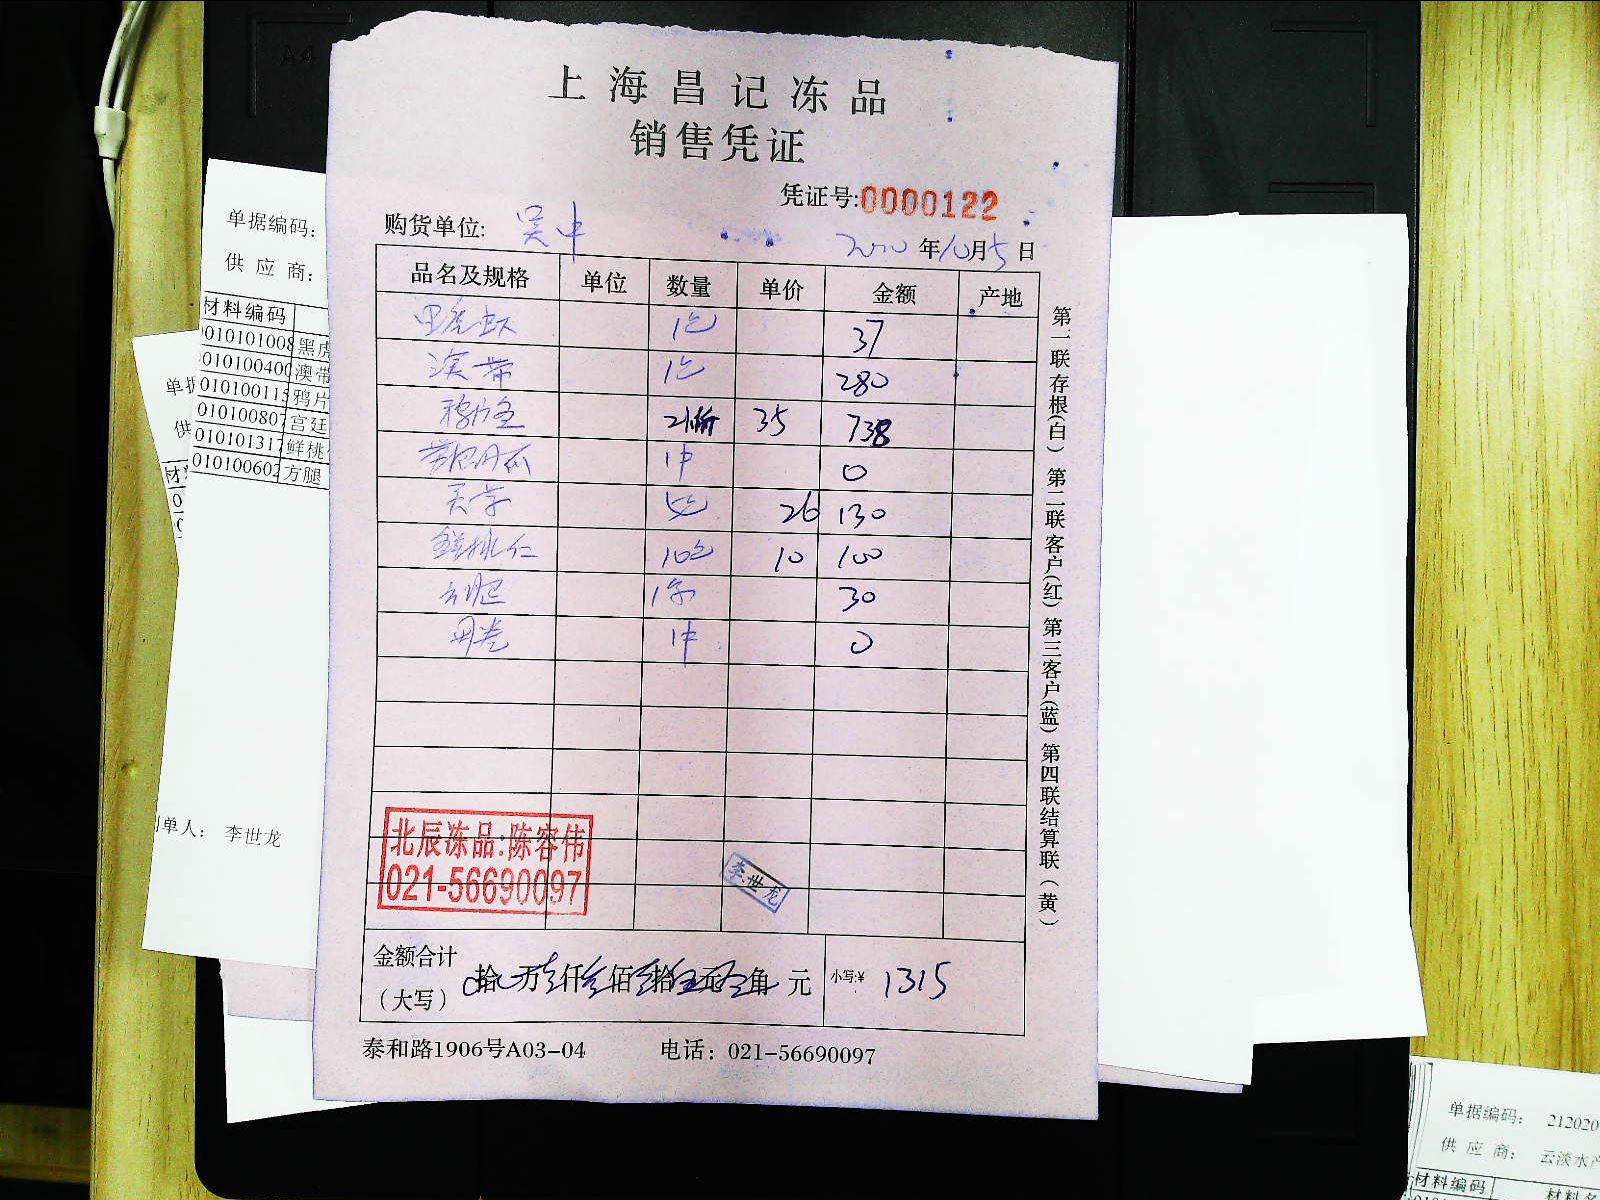 上海昌记冻品
销售凭证
凭证号:0000122
购货单位: 吴中
2020年10月5日
品名及规格 单位 数量 单价 金额 产地
黑虎虾 1包 37
澳带 1包 280
35 738
1中 0
5包 26 130
鲜桃仁 10包 10 100
方腿 1条 30
1中 0
北辰冻品:陈容伟
021-56690097
李世龙
金额合计
(大写)
拾 万 仟 佰 拾 元 角 元 小写:¥ 1315
泰和路1906号A03-04 电话: 021-56690097
第一联存根(白) 第二联客户(红) 第三客户(蓝) 第四联结算联(黄)
单据编码:
供应商:
材料编码
010101008 黑虎
010100400 澳带
010100115 鸦片
010100807 宫廷
010101317 鲜桃
010100602 方腿
制单人: 李世龙
单据编码: 212020
供应商: 云淡水产
材料编码 材料名